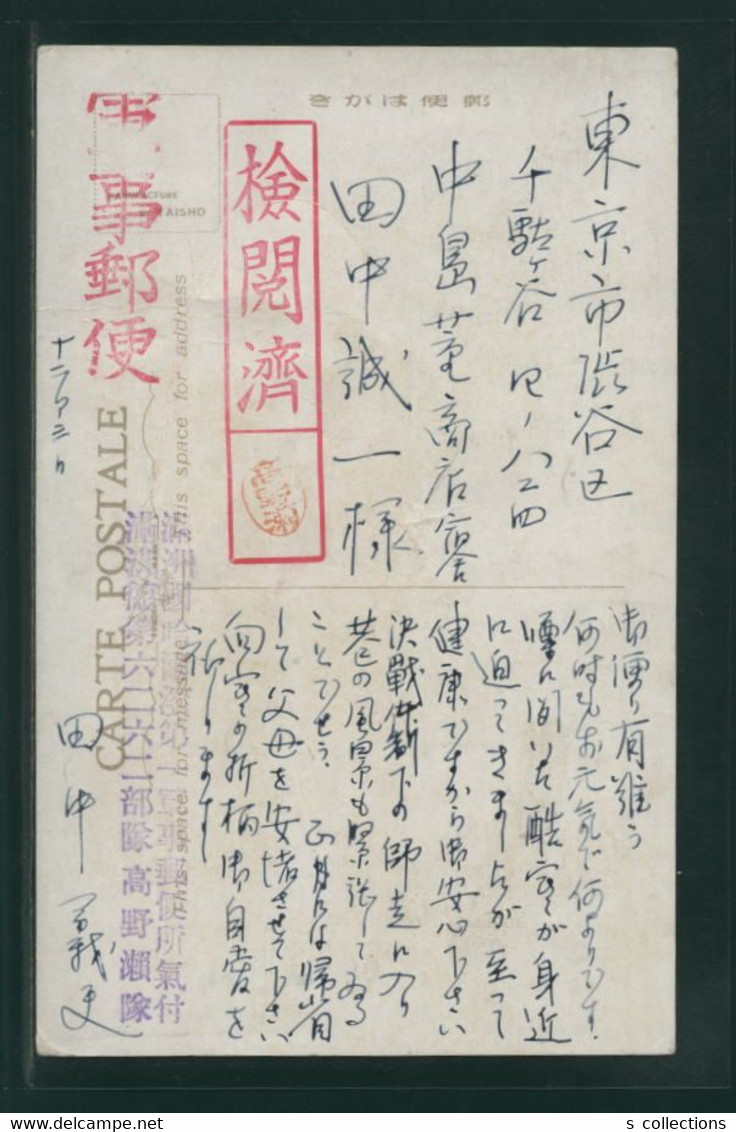 郵便はがき
東京市渋谷区
千駄ヶ谷四ノ八二四
中島董商店寮
田中誠一様
軍事郵便
検閲濟
MANUFACTURE
TAISHO
CARTE POSTALE
This space for address
This space for message
十二月三日
滿洲國哈爾濱第一軍事郵便所氣付
滿洲第六〇六二部隊高野瀬隊
田中
御便り有難う
何時もお元気で何よりです。
噂に聞いた酷寒が身近
に迫ってきましたが至って
健康ですから御安心下さい
決戦体制下の師走に入り
巷の風景も緊張して居る
ことでせう。正月には帰省
して父母を安堵させて下さい
向寒の折柄御自愛を
祈ります
s collections
delcampe.net